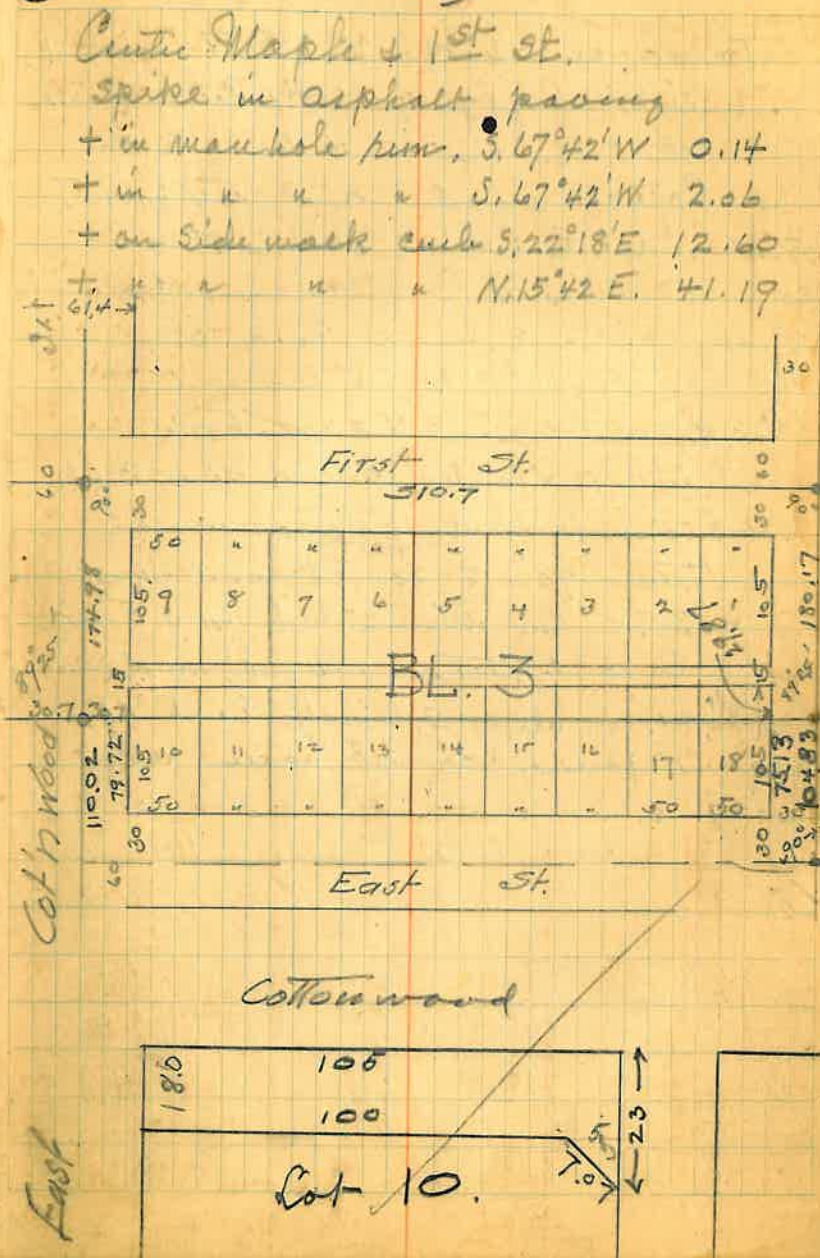 Center Maple & 1st St.
Spike in asphalt paving
+ in manhole rim, S. 67°42' W 0.14
+ in " " " S. 67°42' W 2.06
+ on Side walk curb S. 22°18' E 12.60
+ " " " " N. 15°42 E. 41.19
61.4
30
First St.
60
30
510.7
30
60
50 " " " " " " " "
174.98
105. 9 8 7 6 5 4 3 2 1 105
180.17
15
BL. 3
15
110.02
79.72
105 10 11 12 13 14 15 16 17 18 105
75.13
104.83
50 " " " " " " 50 50
30
30
30
60
East St.
Cot'nwood
Cottonwood
180
105
100
23
5
Lot 10.
East